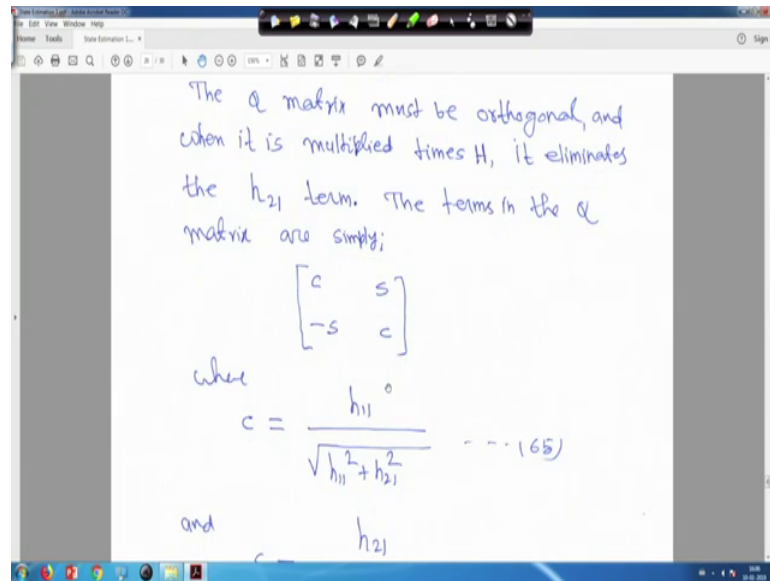 State Estimation 1.pdf - Adobe Acrobat Reader DC
File Edit View Window Help
Home Tools State Estimation 1... × Sign
The Q matrix must be orthogonal, and
when it is multiplied times H, it eliminates
the h₂₁ term. The terms in the Q
matrix are simply;
[ c s
-s c ]
where
c = h₁₁ / √(h₁₁² + h₂₁²) ---- (65)
and
h₂₁